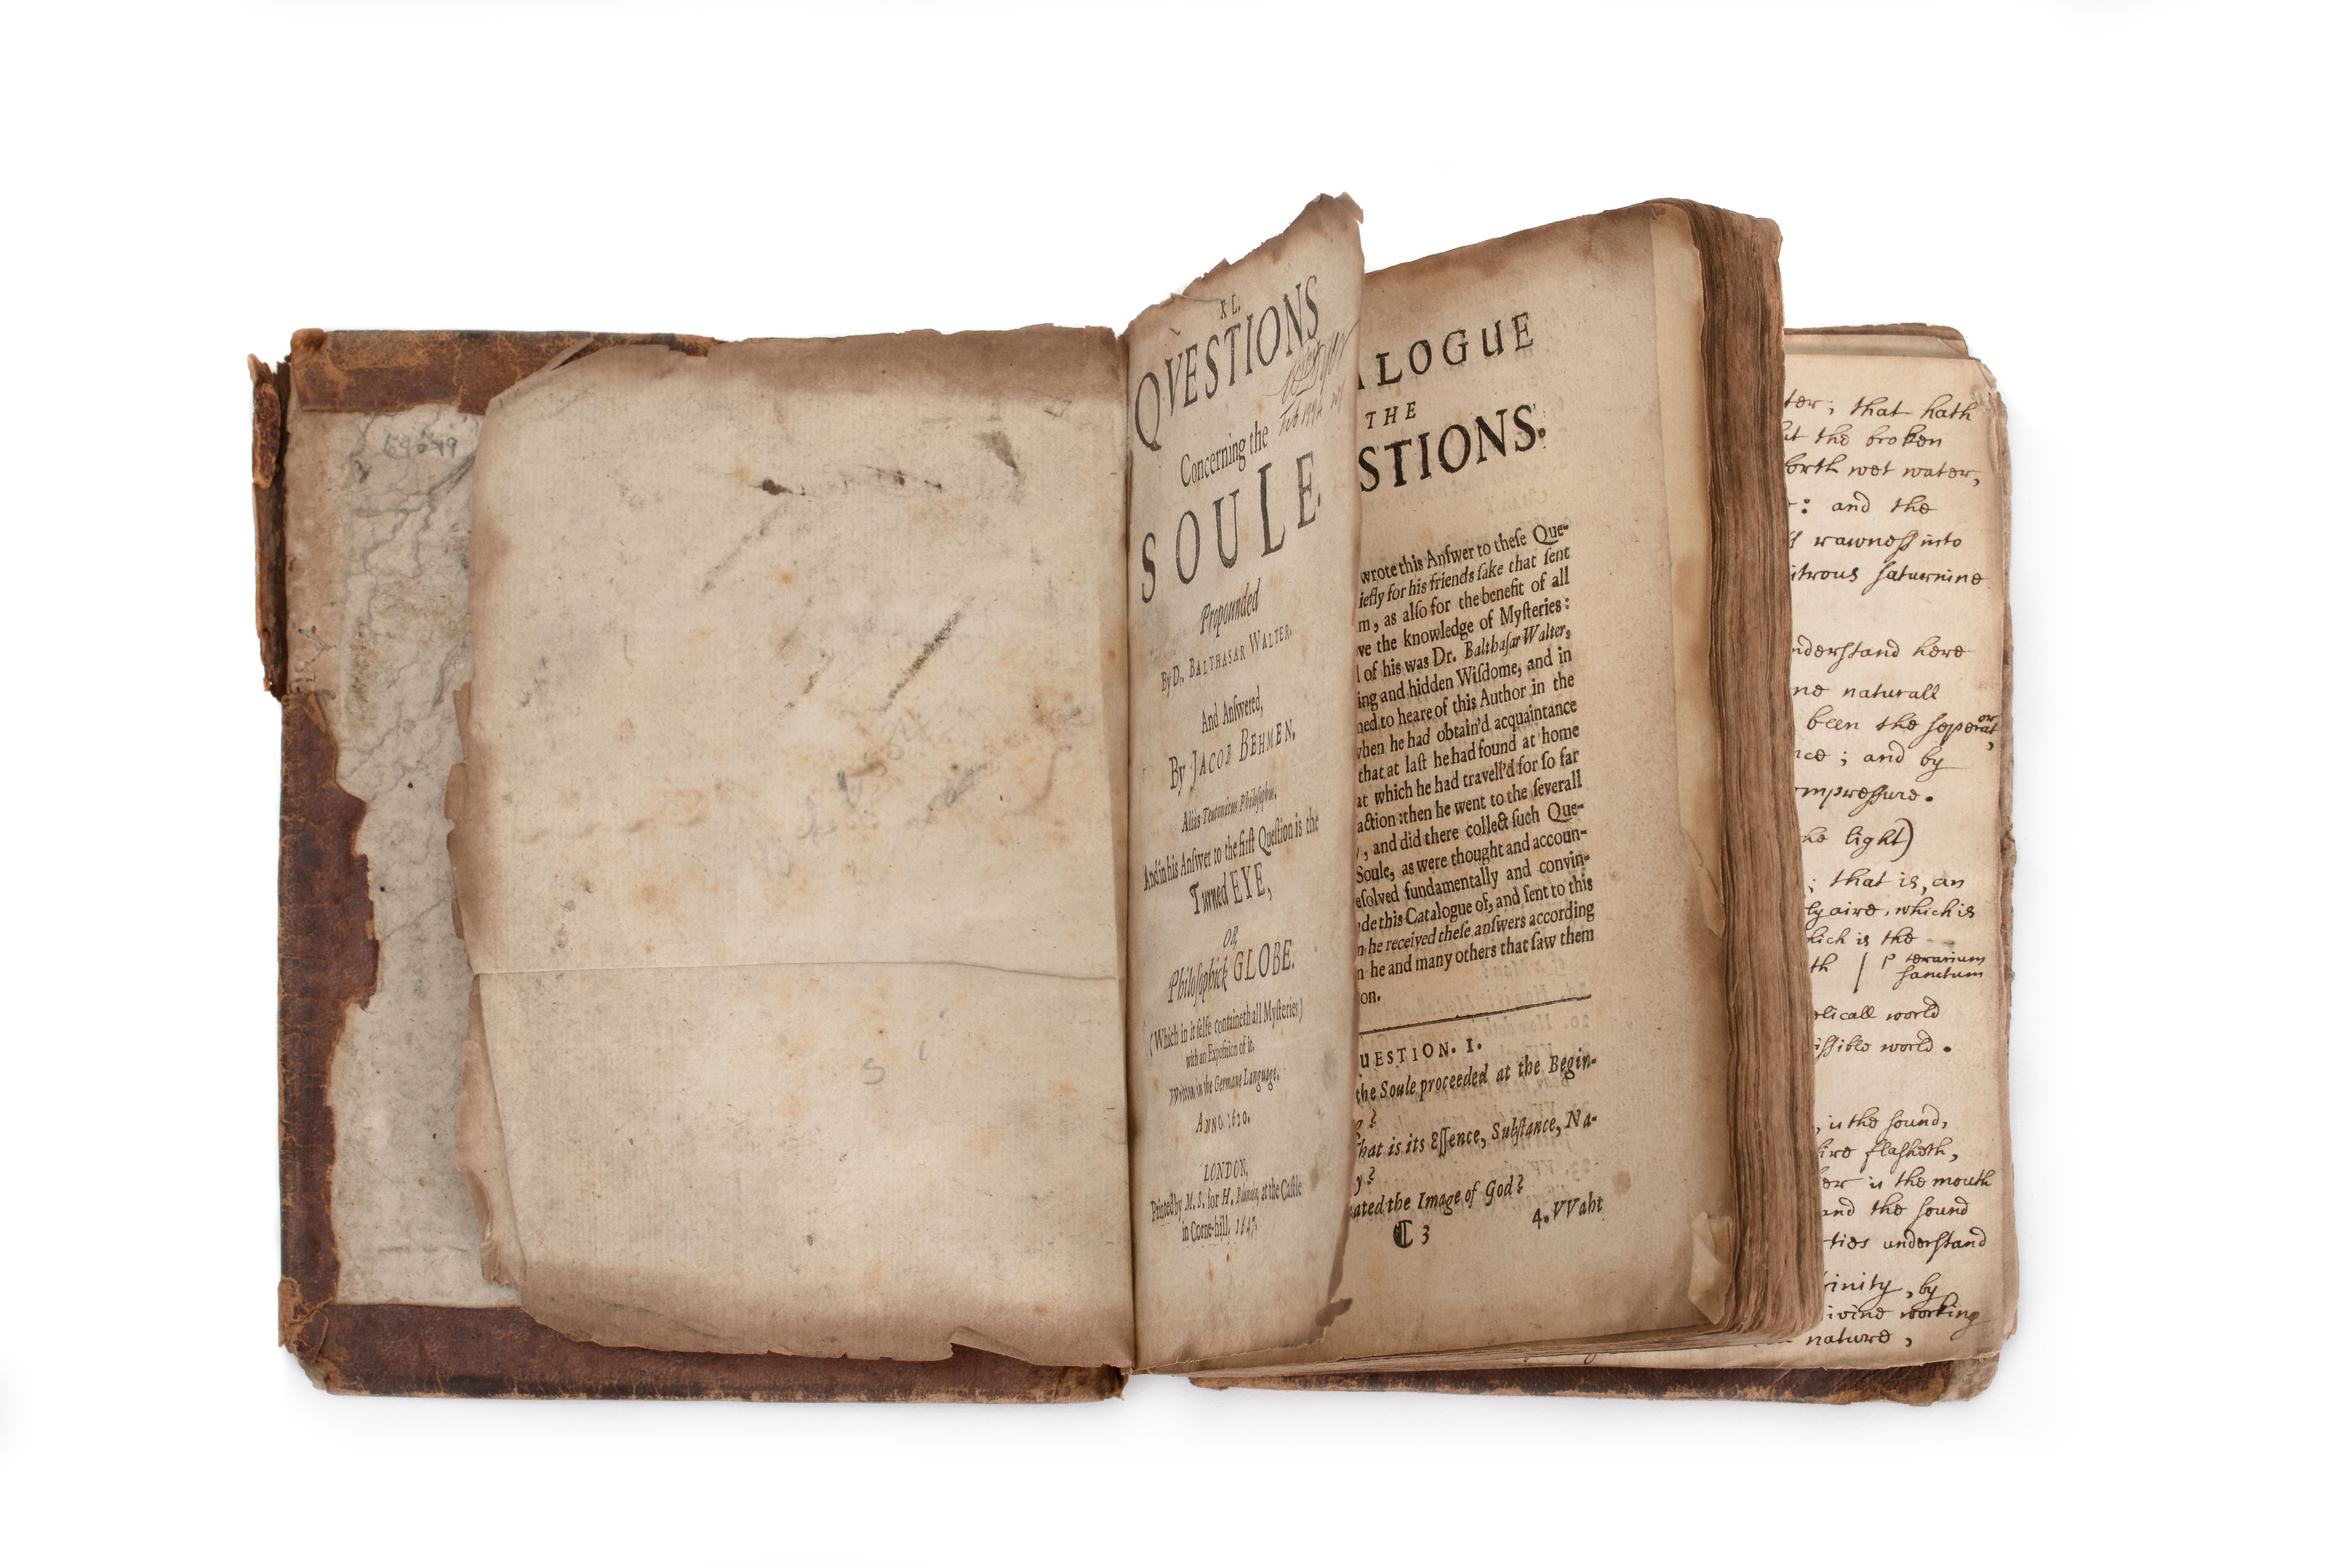 69649
XL.
QVESTIONS
Concerning the
SOULE.
Propounded
By D. BALTHASAR WALTER.
And Anſwered,
By JACOB BEHMEN.
Aliàs Teutonicus Philoſophus.
And in his Anſwer to the firſt Queſtion is the
Turned EYE,
OR,
Philoſophick GLOBE.
(Which in it ſelfe containeth all Myſteries)
with an Expoſition of it.
Written in the Germane Language,
ANNO. 1620.
LONDON,
Printed by M. S. for H. at the Caſtle
in Corne-hill, 1647.
ALOGUE
THE
STIONS.
wrote this Anſwer to theſe Que-
iefly for his friends ſake that ſent
m, as alſo for the benefit of all
ve the knowledge of Myſteries:
l of his was Dr. Balthaſar Walter,
ing and hidden Wiſdome, and in
ned to heare of this Author in the
when he had obtain'd acquaintance
that at laſt he had found at home
at which he had travell'd for ſo far
action: then he went to the ſeverall
, and did there collect ſuch Que-
Soule, as were thought and accoun-
eſolved fundamentally and convin-
de this Catalogue of, and ſent to this
n he received theſe anſwers according
n he and many others that ſaw them
on.
UESTION. I.
the Soule proceeded at the Begin-
g?
hat is its Eſſence, Subſtance, Na-
y?
ated the Image of God?
C 3 4. VVaht
ter; that hath
ut the broken
forth wet water,
: and the
rawneſs into
itrous ſaturnine
nderſtand here
ne naturall
been the ſeperator,
nce; and by
ompreſſure.
he light)
; that is, an
ly aire, which is
hich is the
th | P terarium
ſanctum
elicall world
iſſible world.
, is the ſound,
fire flaſheth,
er is the mouth
and the ſound
ties underſtand
rinity, by
ivine working
nature,